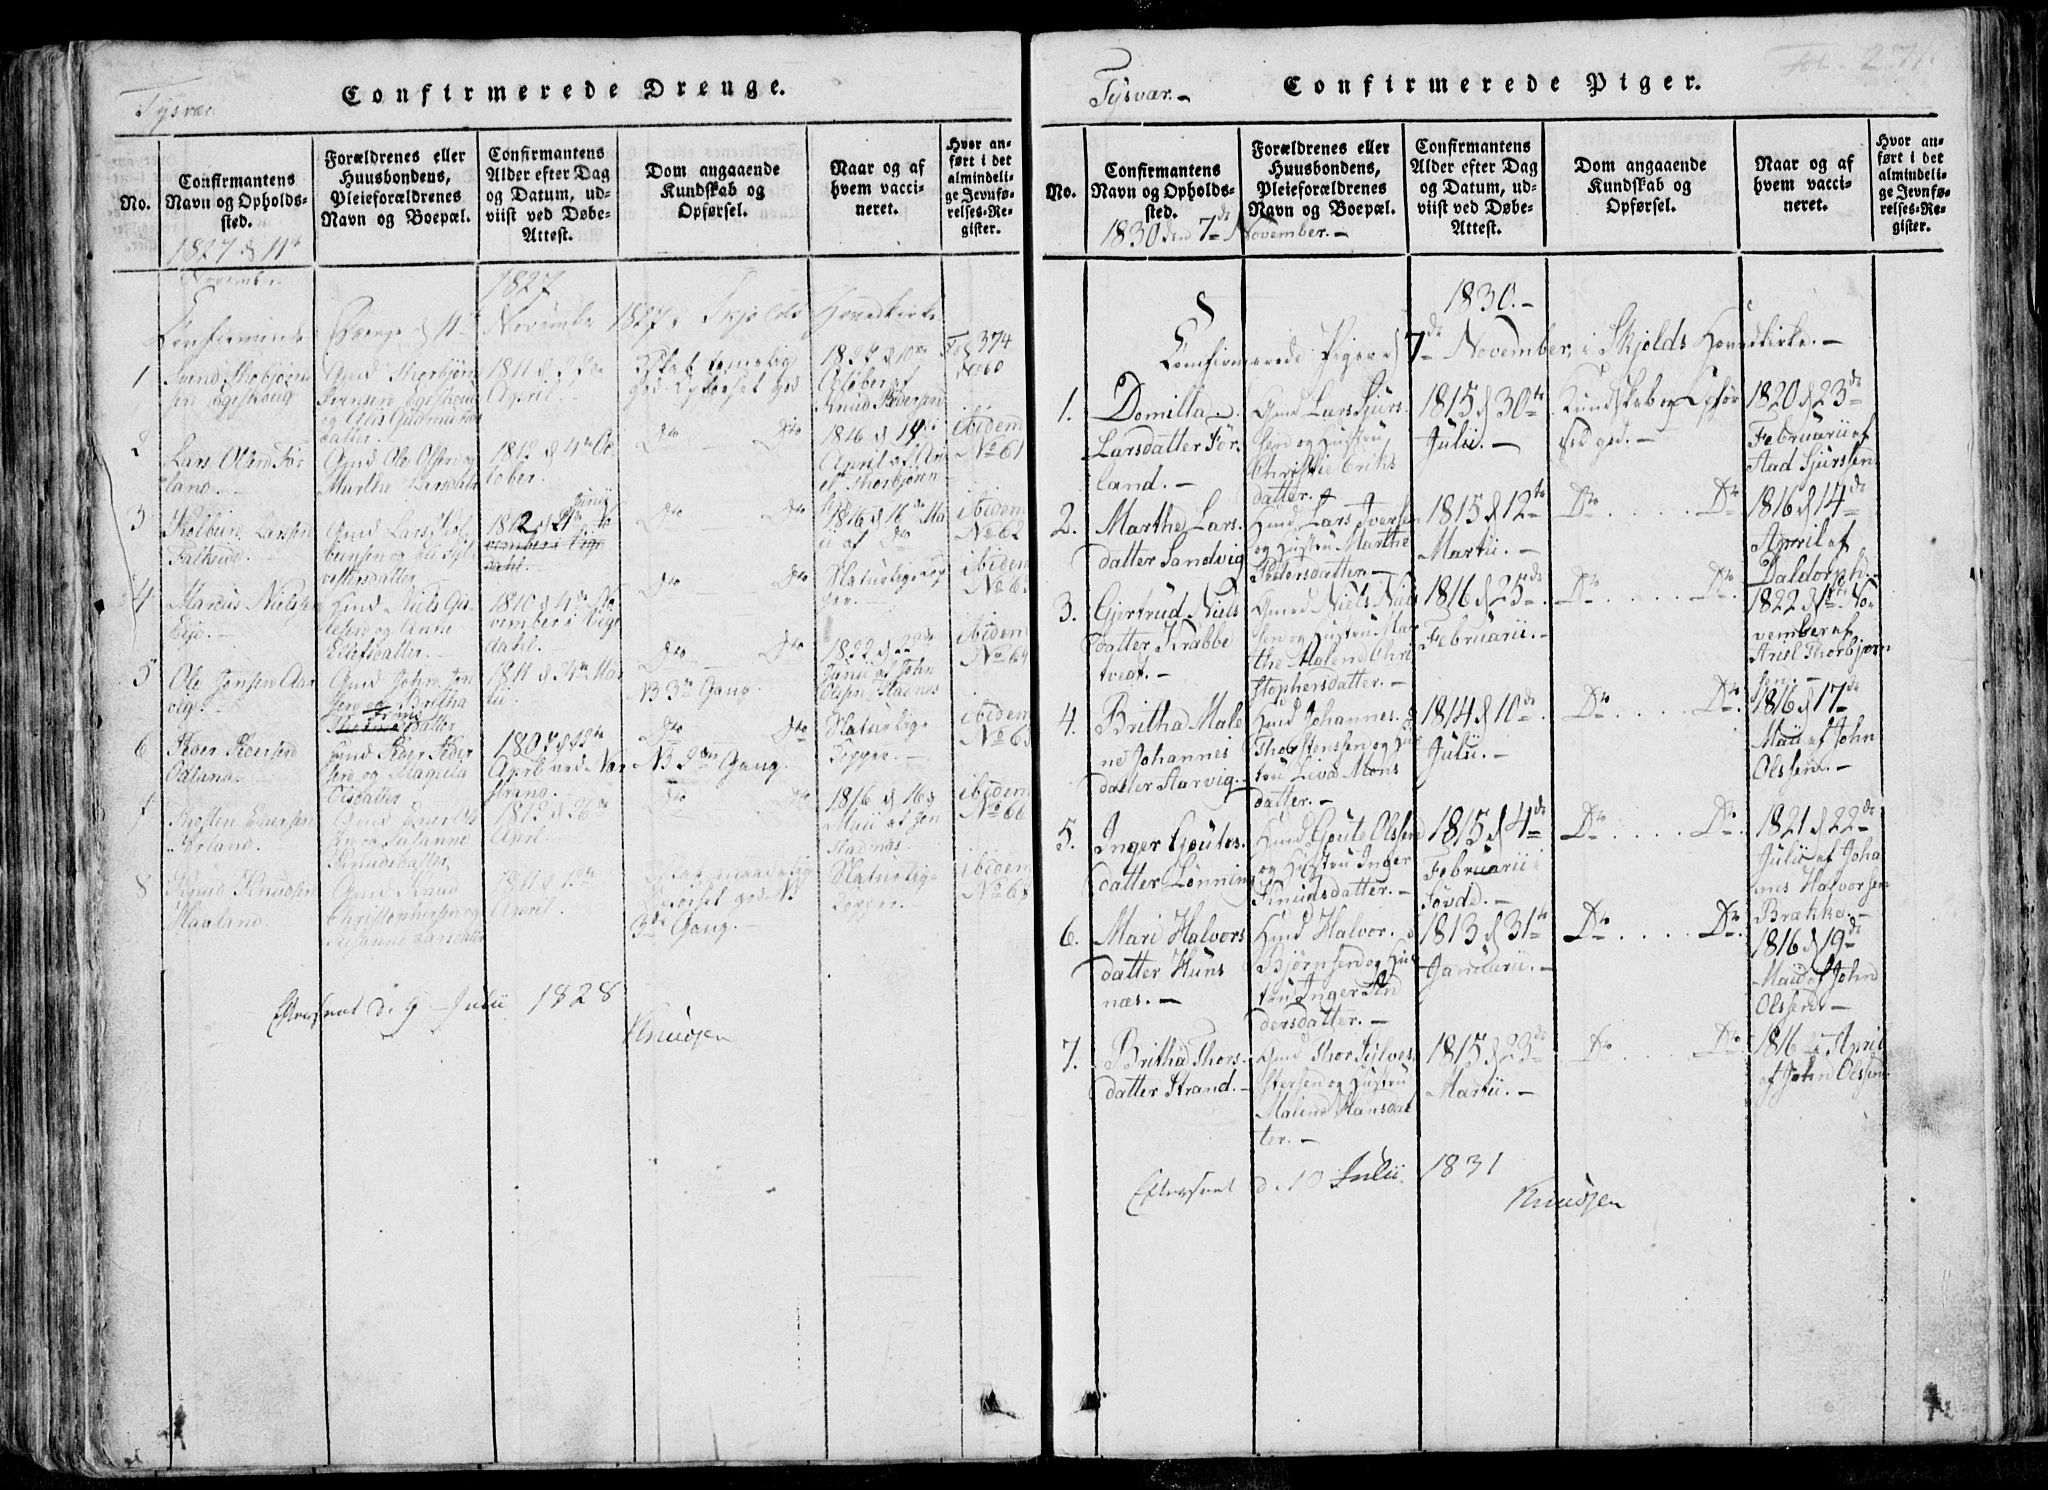 Tysvær
Confirmerede Drenge.
No.
Confirmantens
Navn og Opholds-
sted.
Forældrenes eller
Huusbondens,
Pleieforældrenes
Navn og Boepæl.
Confirmantens
Alder efter Dag
og Datum, ud-
viist ved Døbe-
Attest.
Dom angaaende
Kundskab og
Opførsel.
Naar og af
hvem vacci-
neret.
Hvor an-
ført i det
almindeli-
ge Jevnfø-
relses-Re-
gister.
1827 d 11te
November
1827
Confirmerede Drenge d 11te November 1827 i Skjolds Hovedkirke
1
Svend Thorbjørn
sen Egeskoug
Gmd Thorbjørn
Svensen Egeskoug
og Alis Gudmunds
datter.
1811 d
April.
1827 d 10de
October af
Knud Pedersen
Fol 374
No 60
2
Lars Olsen Før
land.
Gmd Ole Olsen og
Marthe Larsdatter
1812 d 4de Oc
tober.
Dto Dto
1816 d 14de
April af Ar
el Thorbjørn
ibidem
No 61
3
Gmd Lars
vestersdatter
1812 d 21de Junii
vember i Vigs
dahl.
Dto Dto
1816 d 16de Ma
ii af Dto
ibidem
No 62
4
Marcus Nielsen
Eie.
Hmd Niels
og Anne
Ellefsdatter.
1810 d 4de No
vember i Vigs
dahl.
Dto Dto
Naturlige Kop
per.
ibidem
No 63
5
Ole Jonsen Aar
vig.
Gmd John Jon
sen og Britha
datter
1811 d 24de Mar
tii.
Dto Dto
NB 3de Gang.
1822 d 22de
Junii af John
Olsen Stadnes
ibidem
No 64
6
Iver Pedersen
Odland.
Hmd Peder Peder
sen og Magnila
Olsdatter
April ved Nær
strand.
Dto Dto
NB 2den Gang.
Naturlige
Kopper.
ibidem
No 65
7
Thosten Enersen
Gmd
og Susanne
Knudsdatter
1812 d 26de
April.
Dto Dto
1816 d 16d
Maii af Jon
Stadnæs.
ibidem
No 66
8
Knud Knudsen
Maaland.
Gmd Knud
Christophersen og
Susanne Larsdatter
1811 d
April.
maadelig
Opførsel god NB
3de Gang.
Naturlige
Kopper.
ibidem
No 68
Efterseet d. 9 Julii 1828
Knudsen
Fol. 271.
Tysvær.
Confirmerede Piger.
No.
Confirmantens
Navn og Opholds-
sted.
Forældrenes eller
Huusbondens,
Pleieforældrenes
Navn og Boepæl.
Confirmantens
Alder efter Dag
og Datum, ud-
viist ved Døbe-
Attest.
Dom angaaende
Kundskab og
Opførsel.
Naar og af
hvem vacci-
neret.
Hvor an-
ført i det
almindeli-
ge Jevnfø-
relses-Re-
gister.
1830 den 7de November.
1830.
Comfirmerede Piger d 7de November, i Skjolds Hovedkirke.
1.
Domilla
Larsdatter Før
land.
Gmd Lars Sjurs
sen og Hustru,
Christie Eriks
datter.
1815 d 30te
Julii.
Kundskab og Opfør
sel god.
1820 d 23de
Februarii af
Aad Sjurssen.
2.
Marthe Lars
datter Sandvig
Hmd Lars Iversen
og Hustru Marthe
Pedersdatter.
1815 d 12te
Martii.
Do Do
1816 d 14de
April af
Daldorph.
3.
Gjertrud Niels
datter Krabbe
tvedt.
Gmd Niels Niels
sen og Hustru Mar
the Malene Chri
stophersdatter.
1816 d 25de
Februarii.
Do Do
1822 d 1ste No
vember af
Ariel Thorbjørn
sen.
4.
Britha Male
ne Johannes
datter Aarvig
Hmd Johannes
Thorstenssen og Hus
tru Liva Mons
datter.
1814 d 10de
Julii.
Do Do
1816 d 17de
Maii af John
Olssen.
5.
Inger Goutes
datter Lønning
Hmd Goute Olssen
og Hustru Inger
Knudsdatter.
1815 d 4de
Februarii i
Søvde.
Do Do
1821 d 22de
Julii af Joha
nes Halvorsen
Brække.
6.
Mari Halvors
datter Huns
næs.
Hmd Halvor
Bjørnsen og Hus
tru Inger An
dersdatter.
1813 d 31te
Januarii.
Do Do
1816 d 19de
Maii af John
Olssen
7.
Britha Thors
datter Strand.
Gmd Thor Sylves
tersen og Hustru
Malene Hansdat
ter.
1815 d 23de
Martii.
Do Do
1816 i April
af John Olssen
Efterseet d. 10 Julii 1831
Knudsen